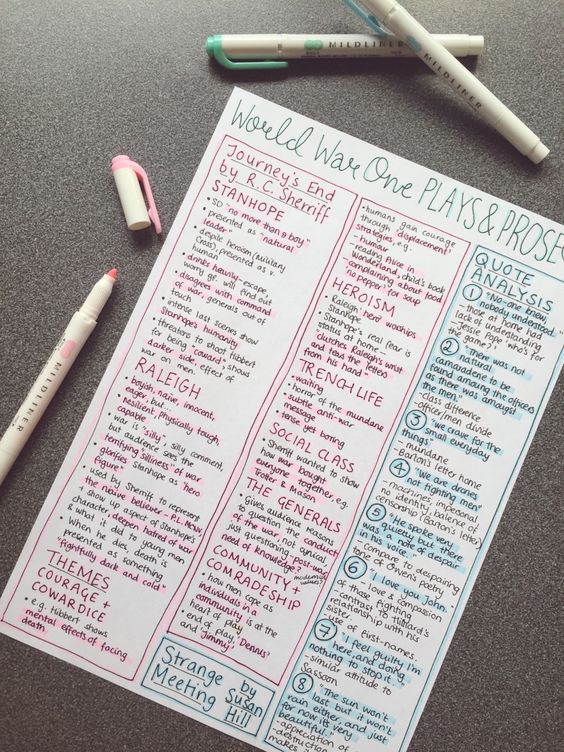 MILDLINER
MILDLINER
MILDLINER
World War One PLAYS & PROSE
Journey's End
by R.C. Sherriff
STANHOPE
• SD "no more than a boy"
• presented as "natural
leader"
• despite heroism (Military
Cross), presented as v.
human
• drinks heavily - escape
• worry gf. will find out
• disagrees with command
of war, generals out of
touch
• intense last scenes show
Stanhope's humanity
• threatens to shoot Hibbert
for being 'coward', shows
darker side, effect of
war on men.
RALEIGH
• boyish, naive, innocent,
eager, but...
• resilient, physically tough,
capable
• war is "silly", silly comment
but audience sees the
terrifying silliness of war
• glorifies Stanhope as "hero
figure"
• used by Sherriff to represent
the naive believer -
show up aspect of Stanhope's
deepen hatred of war
& what it did to young men
• When he dies, death is
presented as something
"frightfully dark and cold"
THEMES
COURAGE +
COWARDICE
• e.g. Hibbert shows
mental effects of facing
death
• humans gain courage
through 'displacement'
strategies, e.g.
- humour
- reading Alice in
Wonderland, child's book
- complaining about food
"no pepper" for soup
HEROISM
• Raleigh 'hero' worships
Stanhope
• Stanhope's real fear is
status at home -
clutches Raleigh's wrist
and tears the letters
from his hand"
TRENCH LIFE
• waiting
• horror of the mundane
• subtle anti-war
message
• tense yet boring
SOCIAL CLASS
• Sherriff wanted to show
how war bought
everyone together, e.g.
Trotter & Mason
THE GENERALS
• Gives audience reasons
to question the conduct
of the war, but is it
just questioning post-war,
need of knowledge?
COMMUNITY +
COMRADESHIP
• how men cope as
individuals in a
community is at the
heart of play
• end of play, 'Dennis'
and 'Jimmy'
Strange
Meeting
by
Susan
Hill
QUOTE
ANALYSIS
① "No-one knew,
nobody understood."
- those at home had
lack of understanding
- (Jessie Pope 'who's for
the game?')
② "There was not
natural
camaraderie to be
found among the officers
as there was amongst
the men."
- class difference
- officer/men divide
③ "we crave for the
small everyday
things"
- mundane
- Barton's letter home
④ "We are drones
not fighting men"
- machines, impersonal,
no identity, absence of
censorship (Barton's letter)
⑤ "He spoke very
quietly but there
was a note of despair
in his voice."
- compare to despairing
tone of Owen's poetry
⑥ "I love you John."
- love & compassion
of those fighting
- contrast to Hilliard's
relationship with his
sister
- use of first-names.
⑦ "I feel guilty I'm
here, and doing
nothing to stop it."
- similar attitude to
Sassoon
⑧ "The sun won't
last but it won't
rain either, and just
for now it's very
beautiful."
- appreciation of
- destruction
makes